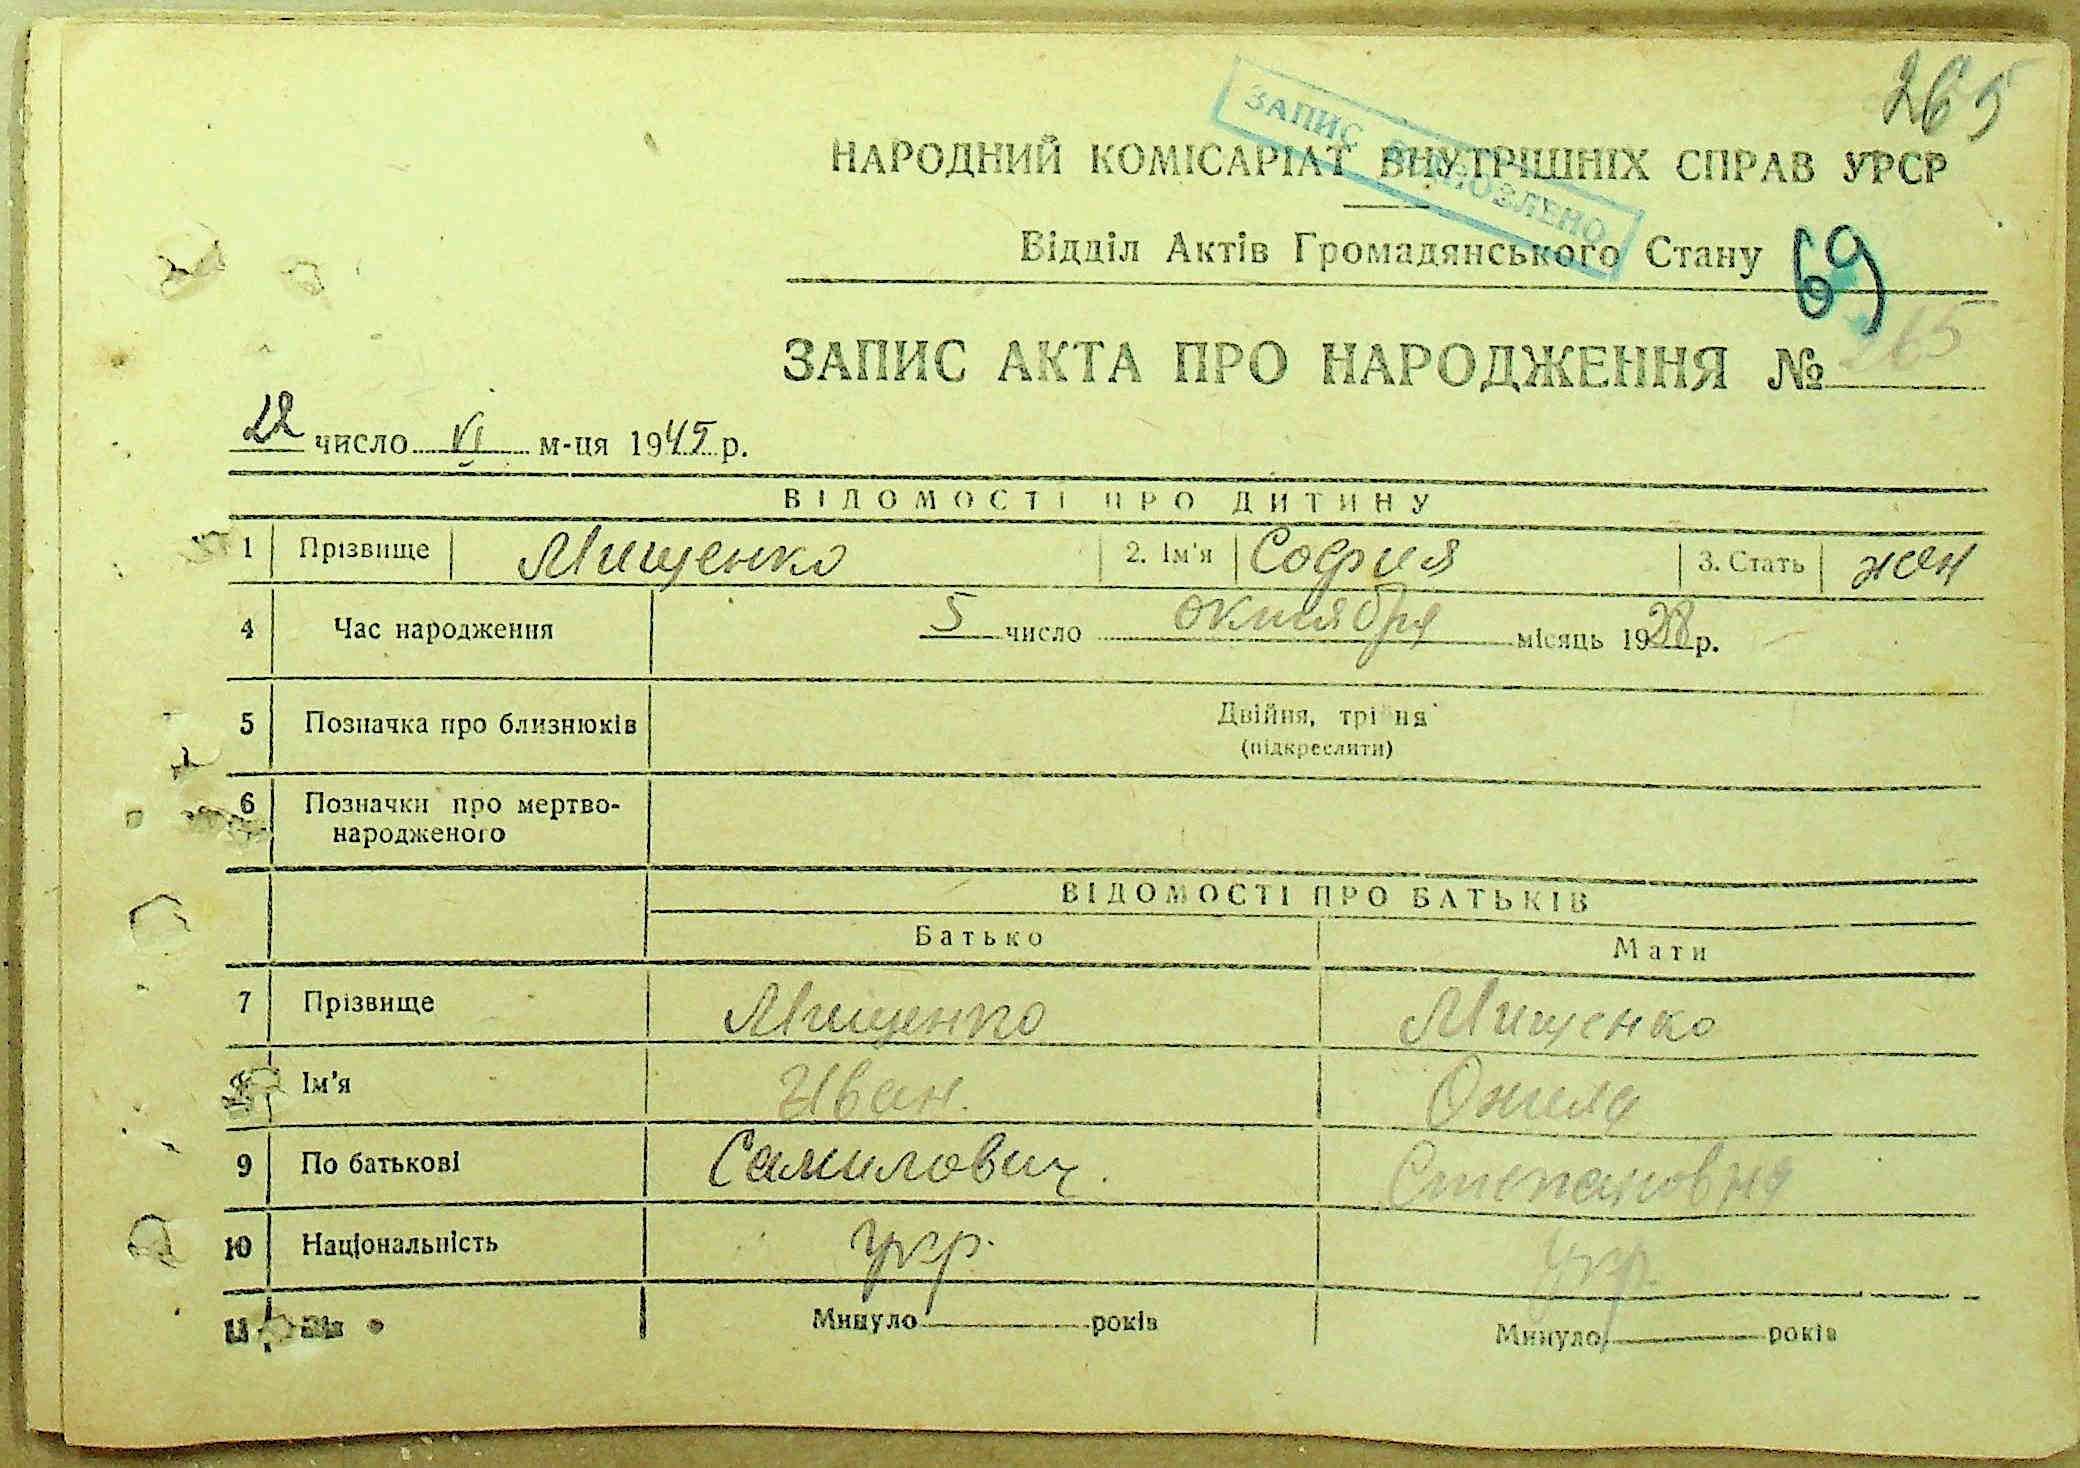 265
ЗАПИС ВІДНОВЛЕНО
НАРОДНИЙ КОМІСАРІАТ ВНУТРІШНІХ СПРАВ УРСР
Відділ Актів Громадянського Стану 69
ЗАПИС АКТА ПРО НАРОДЖЕННЯ № 265
22 число VI м-ця 1945 р.
ВІДОМОСТІ ПРО ДИТИНУ
1 Прізвище Мищенко 2. Ім'я София 3. Стать жен
4 Час народження 5 число октября місяць 1938 р.
5 Позначка про близнюків Двійня, трійня
(підкреслити)
6 Позначки про мертво-
народженого
ВІДОМОСТІ ПРО БАТЬКІВ
Батько Мати
7 Прізвище Мищенко Мищенко
Ім'я Иван.
9 По батькові Самилович. Степановна
10 Національність укр. укр.
11 Вік Минуло років Минуло років